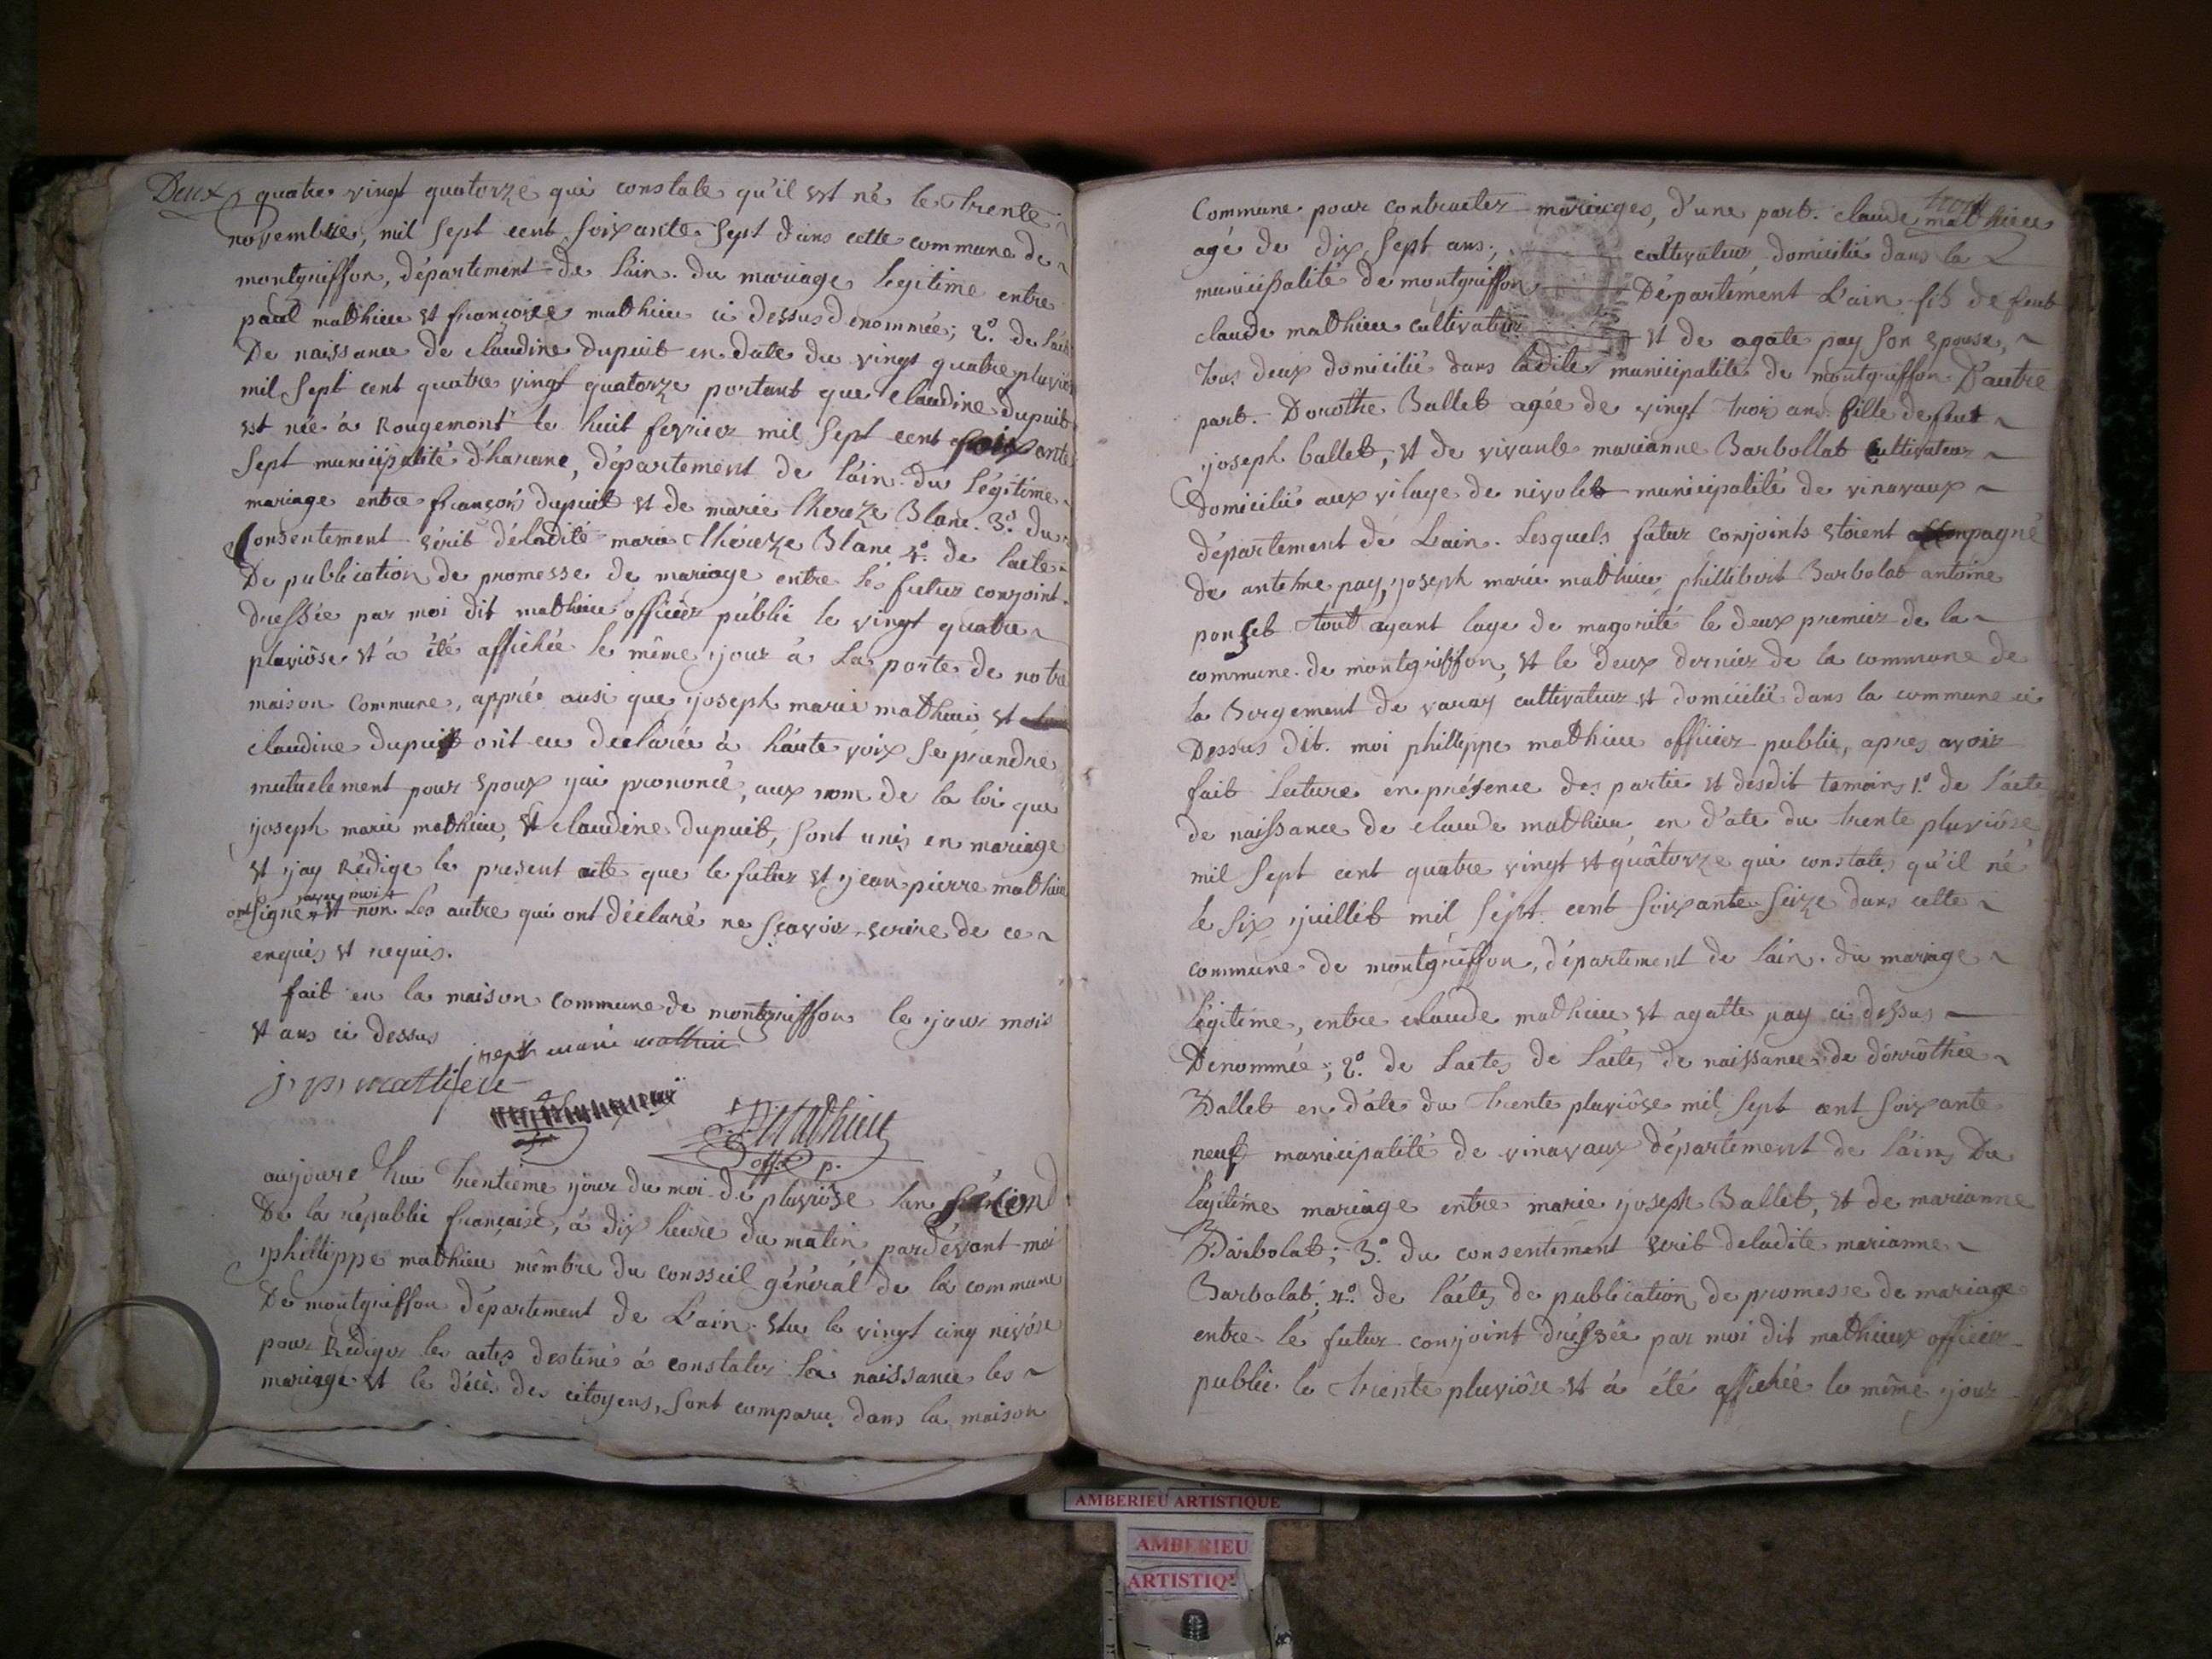 Deux quatre vingt quatorze qui constate qu'il est né le trente
novembre, mil sept cent soixante sept dans cette commune de
montgriffon, département de l'ain. du mariage legitime entre
paul mathieu et françoise mathieu ci dessus denommée; 2.º de l'act
De naissance de claudine dupuit en date du vingt quatre pluvios
mil sept cent quatre vingt quatorze portant que claudine dupuit
est née à Rougemont le huit fevrier mil sept cent soixante
sept municipalité d'harane, département de l'ain. du légitime
mariage entre françois dupuit et de marie thereze Blanc. 3.º du
Consentement écrit deladite marie théreze Blanc 4.º de l'acte
De publication de promesse de mariage entre les futur conjoint.
dressée par moi dit mathieu officier public le vingt quatre
pluviôse et à été affichée le même jour à la porte de notre
maison commune, apprée ausi que joseph marie mathieu et
claudine dupuit ont eu declarée à haute voix se prendre
mutuelement pour epoux j'ai prononcé, aux nom de la loi que
joseph marie mathieu, et claudine dupuit, sont unis en mariage
et j'ay Rédige le present acte que le futur et jean pierre mathieu
avec moi
ont signé et non les autre qui ont déclaré ne sçavoir écrire de ce
enquis et requis.
fait en la maison commune de montgriffon le jour mois
et ans ci dessus
joseph marie mathieu
j p mathieu
P Mathieu
off. p.
aujourd hui trentieme jour du moi de pluviôse l'an second
De la républic française, à dix heure du matin pardevant moi
phillippe mathieu mêmbre du consseil général de la commune
De montgriffon département de L'ain. élu le vingt cinq nivôse
pour Rediger les actes destiné à constater la naissance les
mariage et le décès des citoyens, sont comparu dans la maison
trois
Commune pour contracter mariages, d'une part. claude mathieu
agé de dix sept ans; cultivateur domicilié dans la
municipalité de montgriffon Département L'ain fils de feut
claude mathieu cultivateur et de agate pay son epouse,
tous deux domicilié dans ladite municipalité de montgriffon D'autre
part. Dorothe Ballet agée de vingt trois ans fille de feut
joseph ballet, et de vivante marianne Barbollat Cultivateur
domicilié aux vilage de nivolet municipalité de vinavaux
département de L'ain. Lesquels futur conjoints etoient accompagné
de antelme pay, joseph marie mathieu, phillibert Barbolat antoine
ponset tout ayant l'age de magorité le deux premier de la
commune de montgriffon, et le deux dernier de la commune de
la Bergement de varay cultivateur et domicilié dans la commune ci
Dessus dit. moi phillippe mathieu officier public, apres avoir
fait lecture en présence des partie et desdit temoins 1.º de l'acte
de naissance de claude mathieu en d'ate du trente pluviôse
mil sept cent quatre vingt et quâtorze qui constate qu'il né
le six juillet mil sept cent soixante seize dans cette
commune de montgriffon, département de l'ain. du mariage
légitime, entre claude mathieu et agatte pay ci dessus
Denommée; 2.º de l'actes de l'actes de naissance de dorrothée
Ballet en d'ate du trente pluviôse mil sept cent soixante
neuf municipalité de vinavaux département de l'ain, Du
légitime mariage entre marie joseph Ballet, et de marianne
Barbolat; 3.º du consentement ecrit deladite marianne
Barbolat; 4.º de l'actes de publication de promesse de mariage
entre le futur conjoint dressée par moi dit mathieux officier
public le trente pluviôse et à été affichée le même jour
AMBERIEU ARTISTIQUE
AMBERIEU
ARTISTIQ